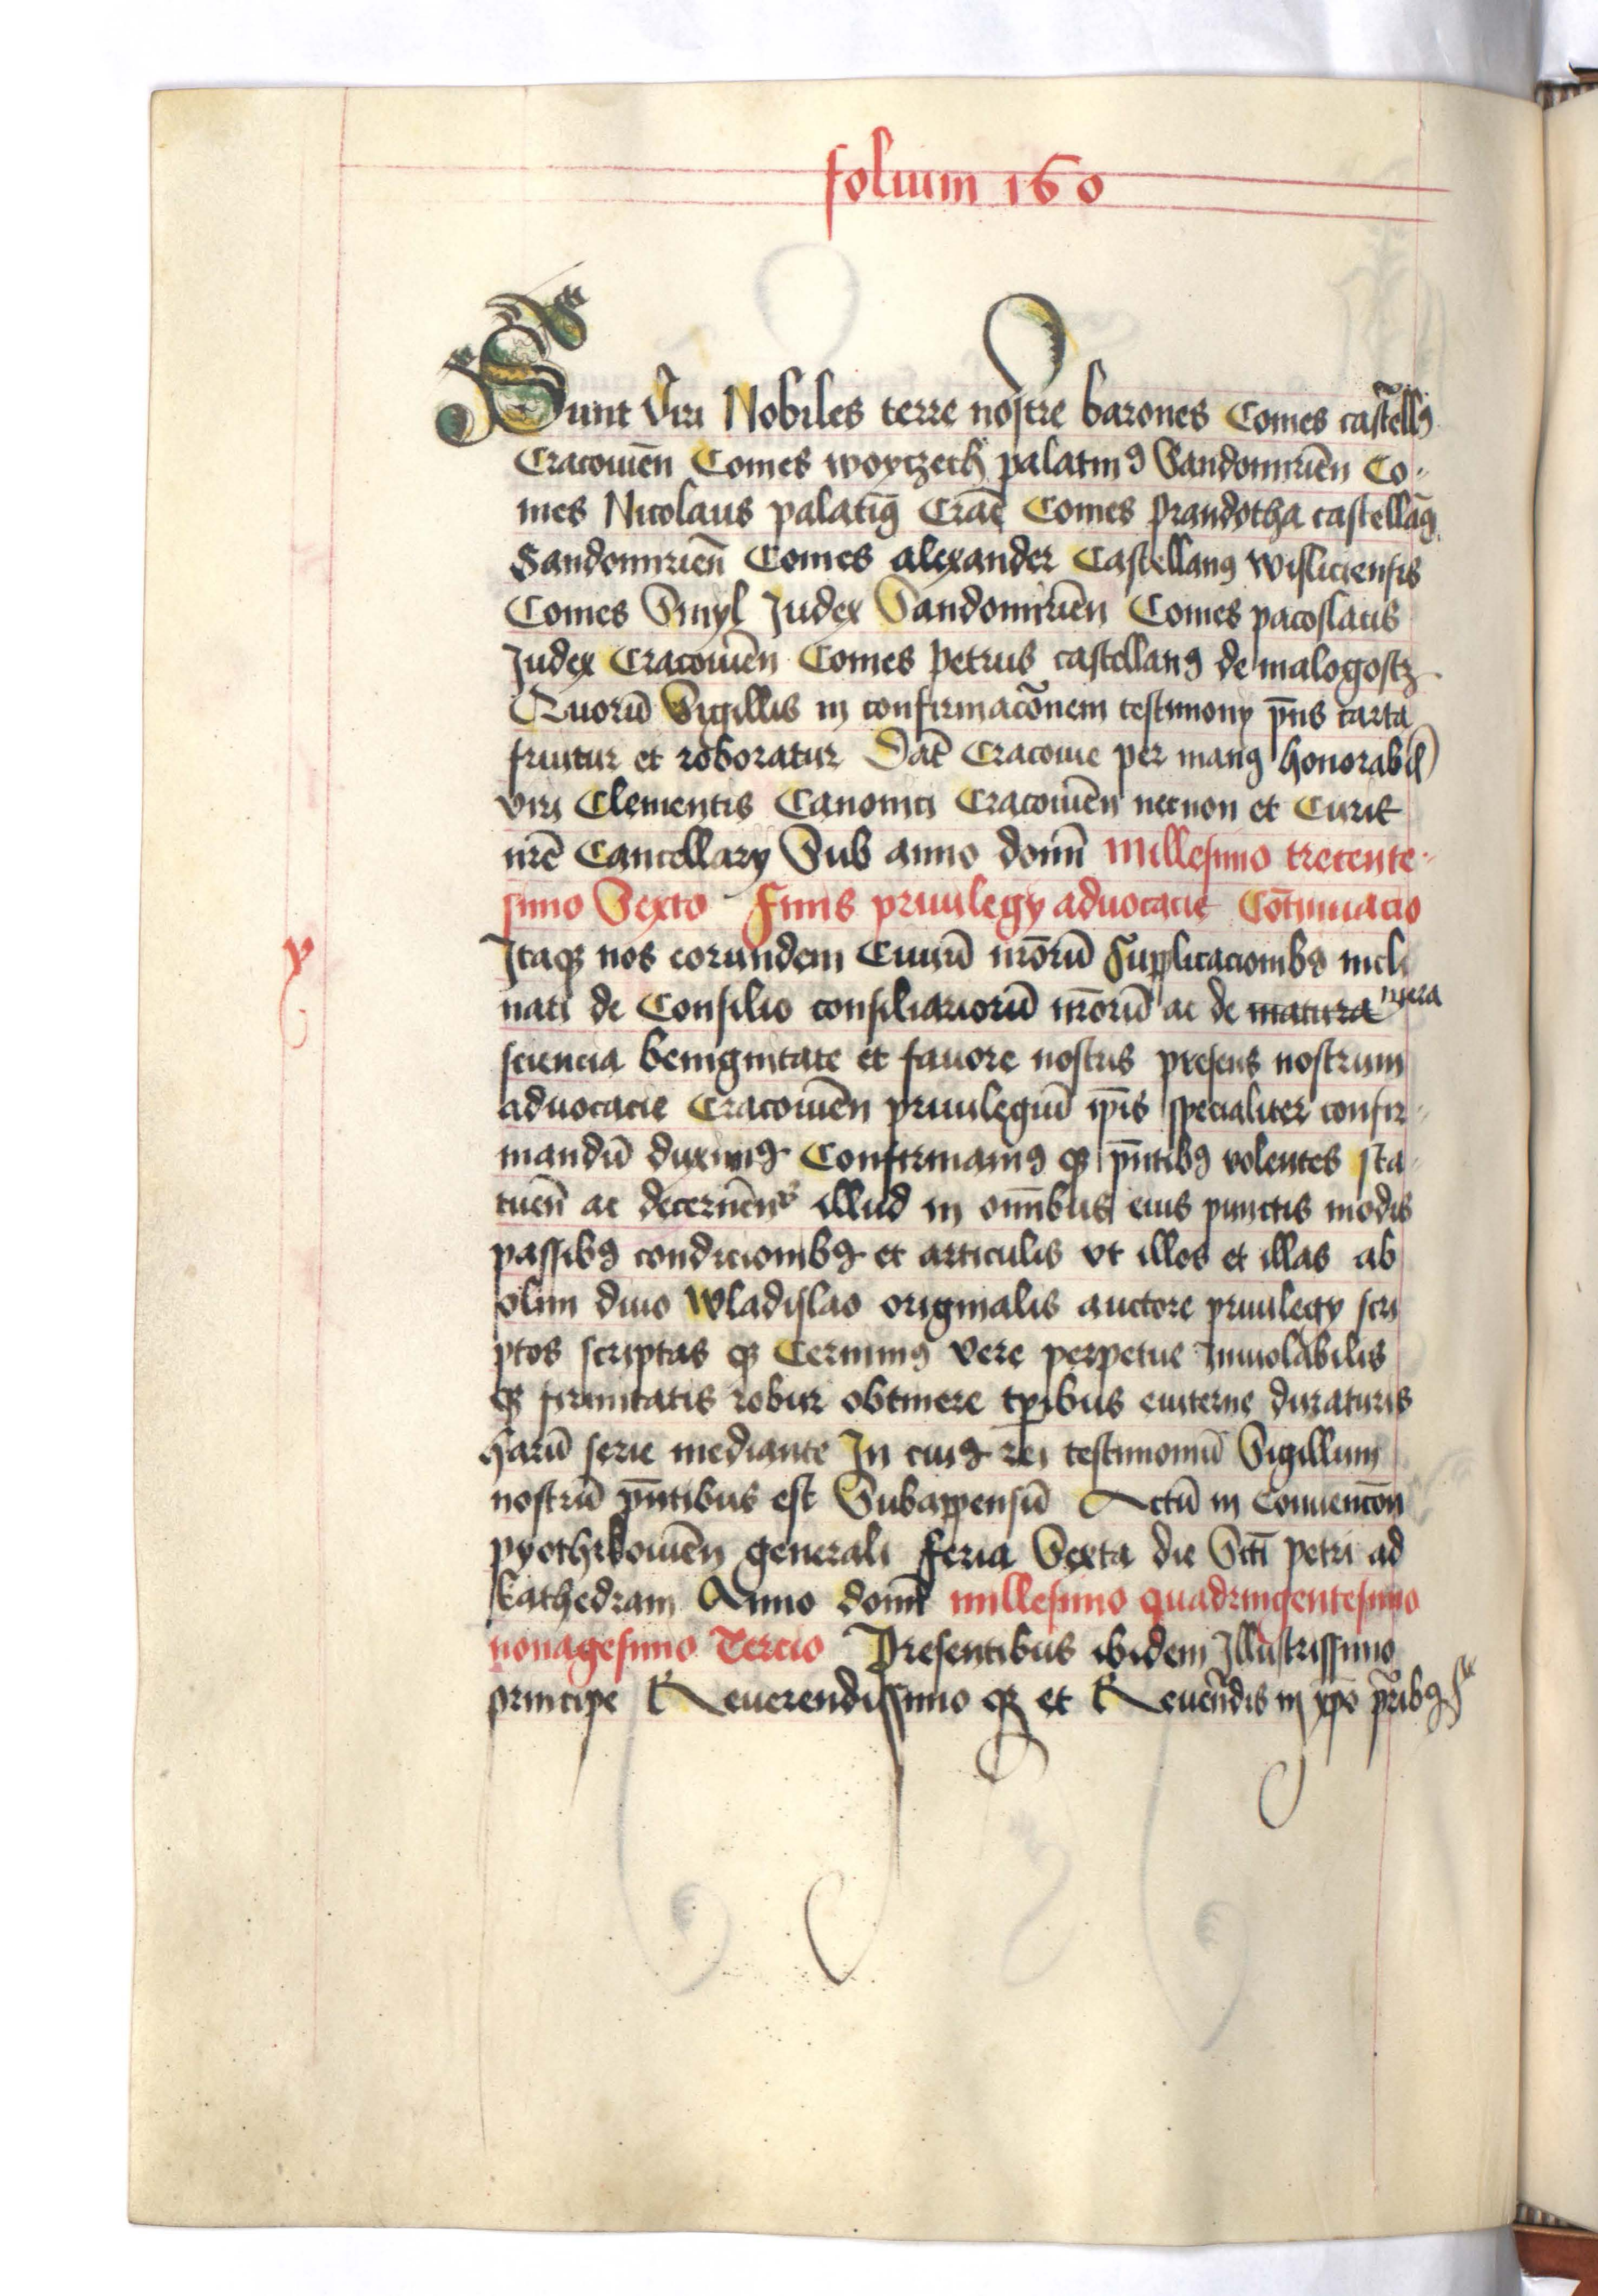 folium 160
Sunt Viri Nobiles terre nostre barones Comes castellꝯ
Cracouien̄ Comes woyczech palatinꝯ Sandomirien̄ Co-
mes Nicolaus palatinꝯ Crac̄ Comes prandotha castellan̄ꝯ
Sandomirien̄ Comes alexander Castellanꝯ wisliciensis
Comes Smyl Judex Sandomirien̄ Comes pacoslaus
Judex Cracouien̄ Comes petrus castellanꝯ de malogostz
Quorū Sigillis in confirmacōnem testimony pn̄s carta
fruitur et roboratur Dat̄ Cracouie per manꝯ honorabil
viri Clementis Canonici Cracouien̄ necnon et Curie
nr̄e Cancellary Sub anno domī Millesimo trecente-
simo Sexto Finis priuilegy aduocacie Cōtinuacio
y
Itaqꝫ nos eorundem Ciuiū nr̄orū Supplicacionibꝯ incli
nati de Consilio consiliariorū nr̄orū ac de matura mera
sciencia benignitate et fauore nostris presens nostrum
aduocacie Cracouien̄ priuilegiū ip̄is specialiter confir-
mandū duximꝯ Confirmamꝯ qꝫ pn̄tibꝯ volentes sta-
tuen̄ ac decernen̄s illud in om̄ibus eius punctis modis
passibꝯ condicionibꝯ et articulis vt illos et illas ab
olim diuo Wladislao originalis auctore priuilegy scri
ptos scriptas qꝫ Cernimꝯ vere perpetue Inuiolabilis
qꝫ firmitatis robur obtinere tp̄ibus euiterne duraturis
harū serie mediante In cuiꝯ rei testimoniū Sigillum
nostrū pn̄tibus est Subappensū Actū in Conuencōn
pyothrkouien̄ generali feria Sexta die Scti petri ad
kathedram Anno domī millesimo quadringentesimo
nonagesimo Tercio Presentibus ibidem Illustrissimo
principe Reuerendissimo qꝫ et Reuen̄dis in xp̄o pr̄ibꝯ